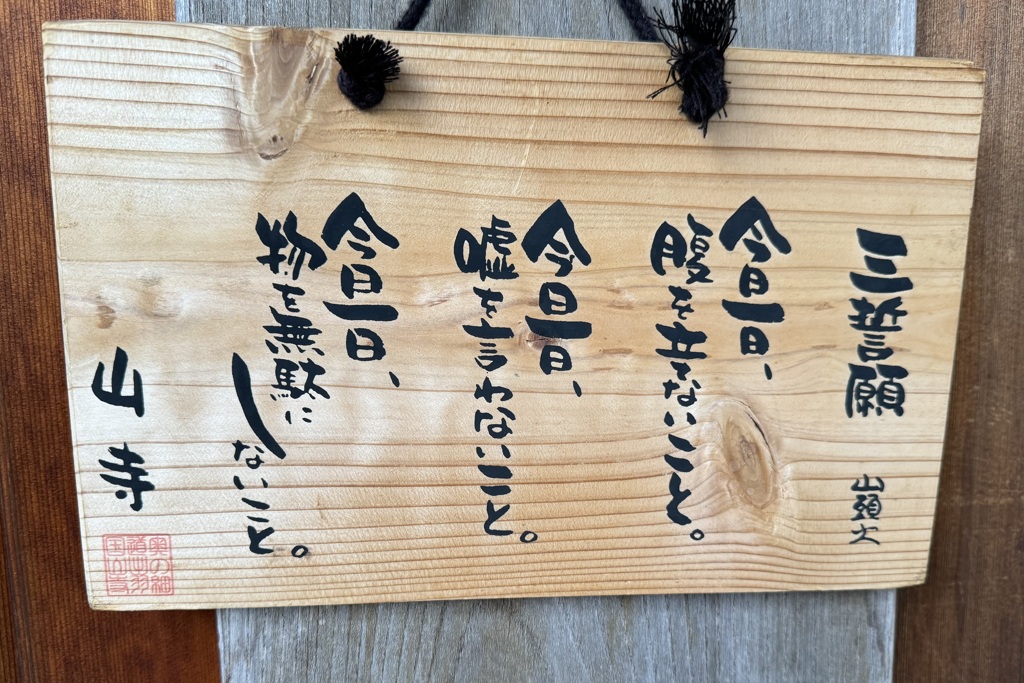 三誓願 山頭火
今日一日、
腹を立てないこと。
今日一日、
嘘を言わないこと。
今日一日、
物を無駄に
しないこと。
山寺
奥の細
道出羽
国山寺